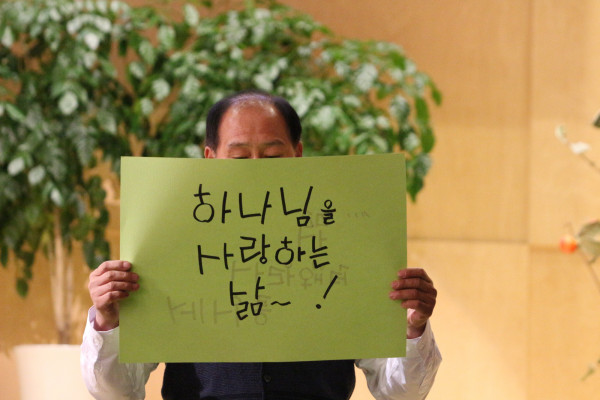 하나님을
사랑하는
삶~ !